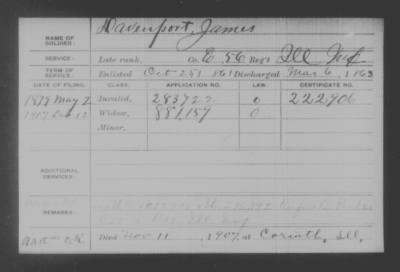 Davenport, James
NAME OF SOLDIER:
SERVICE: Late rank, Co. E, 56 Reg't Ill Inf
TERM OF SERVICE: Enlisted Oct 25, 1861 Discharged Mar 6, 1863
DATE OF FILING. CLASS. APPLICATION NO. LAW. CERTIFICATE NO.
1879 May 2 Invalid, 0 222,906
1907 Dec 12 Widow, 881,159 0
Minor,
ADDITIONAL SERVICES:
REMARKS:
Died Nov 11, 1907, at Corinth, Ill,